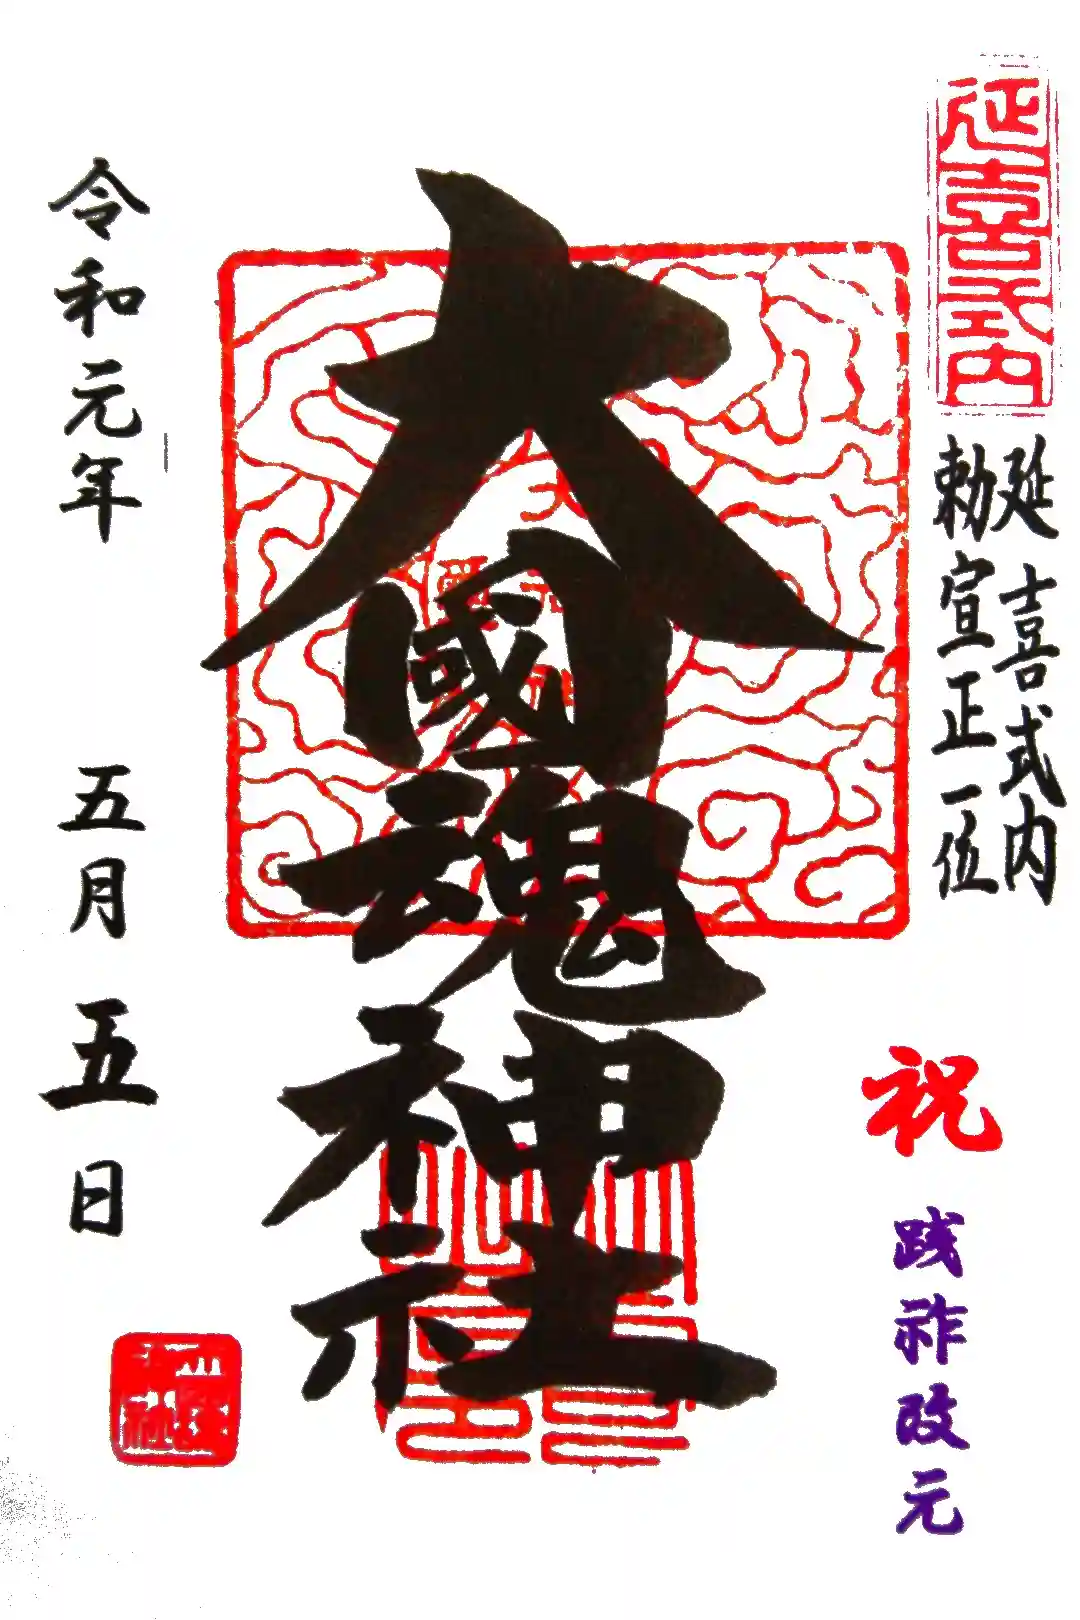 延喜式内
延喜式内
勅宣正一位
祝
践祚改元
大國魂神社
令和元年 五月 五日